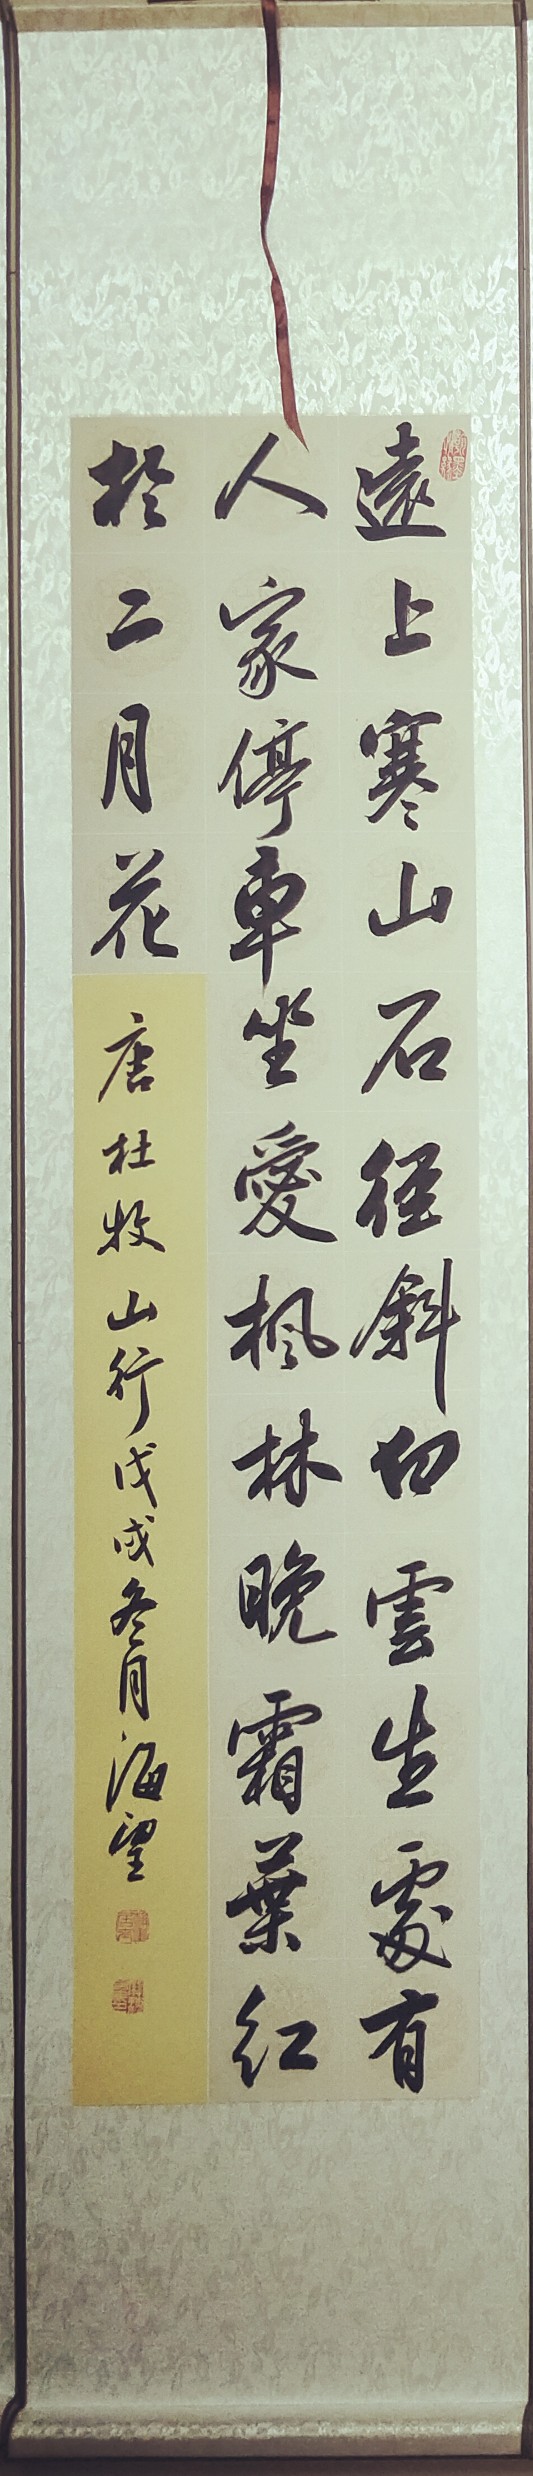 遠上寒山石徑斜白雲生處有
人家停車坐愛楓林晚霜葉紅
於二月花
唐杜牧山行戊戌冬月海望